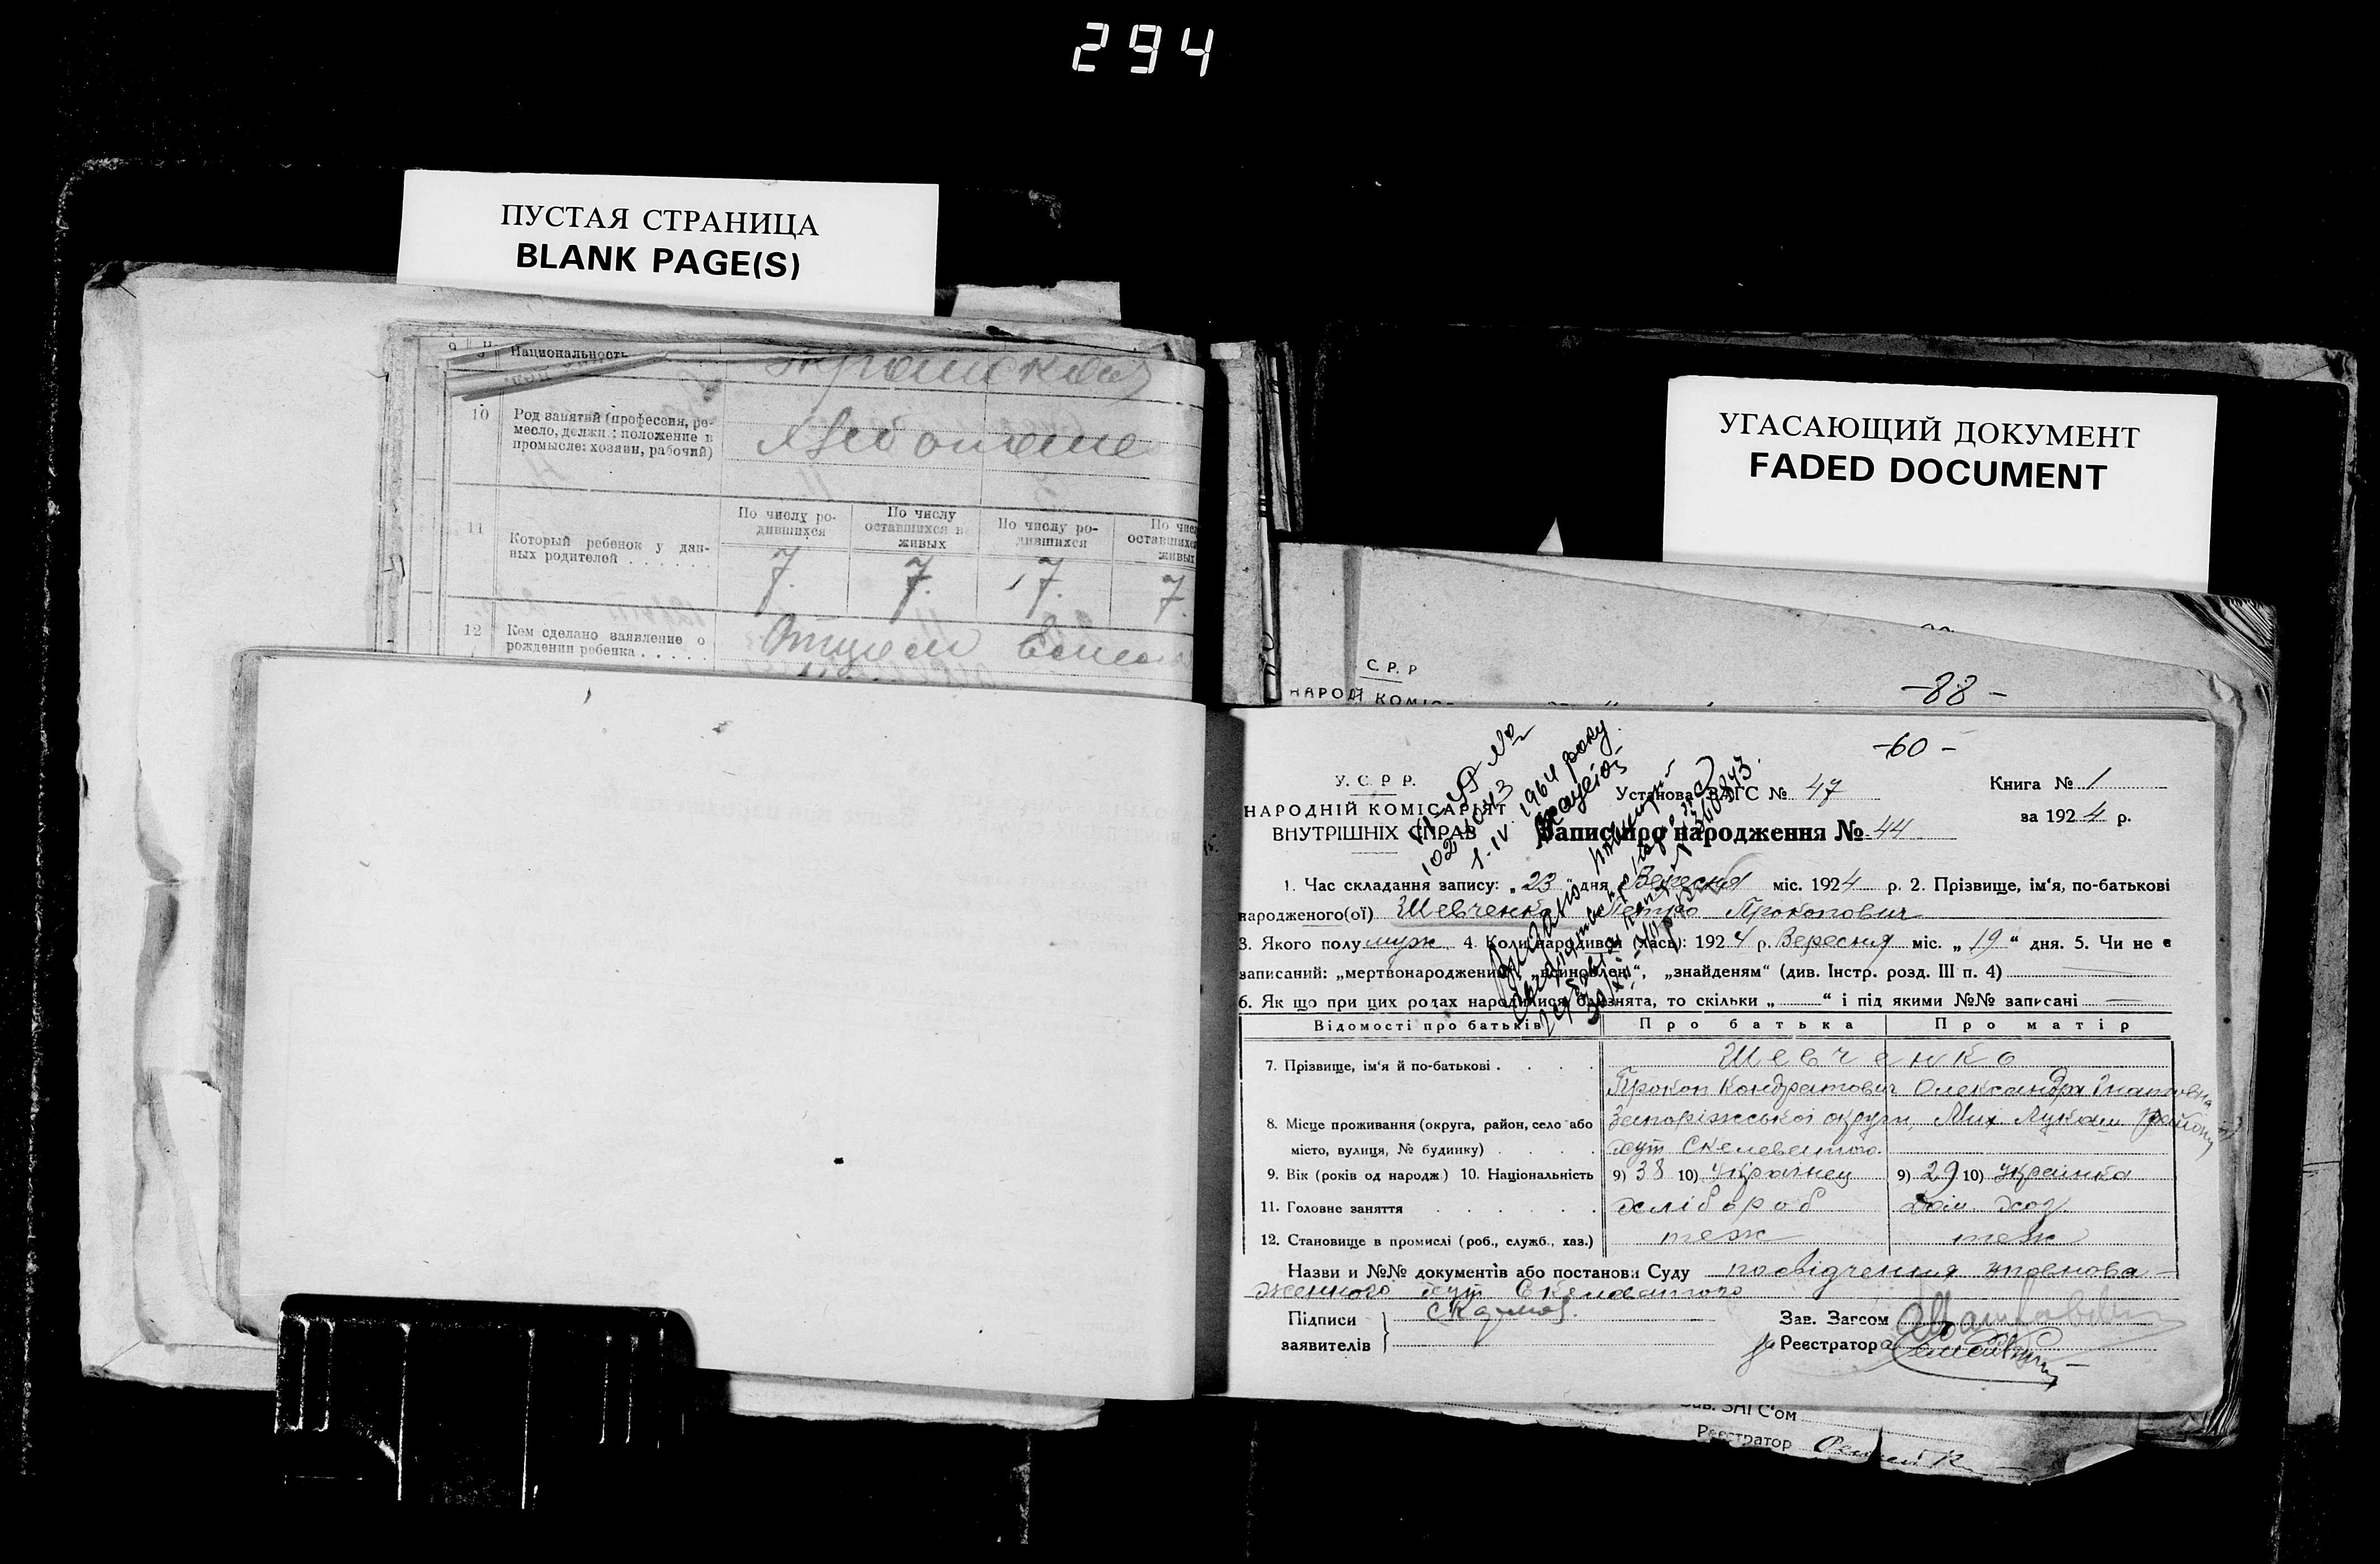 294
ПУСТАЯ СТРАНИЦА
BLANK PAGE(S)
Национальность
10 Род занятий (профессия, ре-
месло, должн.: положение в
промысле: хозяин, рабочий)
11 Который ребенок у дан-
ных родителей
По числу ро-
дившихся
По числу
оставшихся в
живых
По числу ро-
дившихся
По
оставшихся
живых
7. 7. 7. 7.
12 Кем сделано заявление о
рождении ребенка
Отцем
УГАСАЮЩИЙ ДОКУМЕНТ
FADED DOCUMENT
С. Р. Р
-88-
-60-
У. С. Р. Р.
НАРОДНІЙ КОМІСАРІЯТ
ВНУТРІШНІХ СПРАВ
Установа ЗАГС № 47
Книга № 1
за 1924 р.
Запис про народження № 44
1. Час складання запису: „23“ дня Вересня міс. 1924 р. 2. Прізвище, ім‘я, по-батькові
народженого(ої) Шевченко Петро Прокопович
3. Якого полу муж. 4. Коли народився (лась): 1924 р. Вересня міс. „19“ дня. 5. Чи не є
записаний: „мертвонароджений“, „всиновлені“, „знайденям“ (див. Інстр. розд. III п. 4)
6. Як що при цих родах народилися близнята, то скільки „ “ і під якими №№ записані
Відомості про батьків Про батька Про матір
7. Прізвище, ім‘я й по-батькові Шевченко
Прокоп Кондратович Олександра Гнатовна
8. Місце проживання (округа, район, село або Запоріжської округи, Мих. Лукаш району
місто, вулиця, № будинку) хут Скелеватого
9. Вік (років од народж.) 10. Національність 9) 38 10) Українец 9) 29 10) Українка
11. Головне заняття хлібороб дом. хоз
12. Становище в промислі (роб., служб., хаз.) теж теж
Назви и №№ документів або постанови Суду посвідчення уповнова-
женного хут Скелеватого
Підписи
заявителів
Зав. Загсом
Реєстратор
1964 року
Зав. ЗАГС'ом
Реєстратор